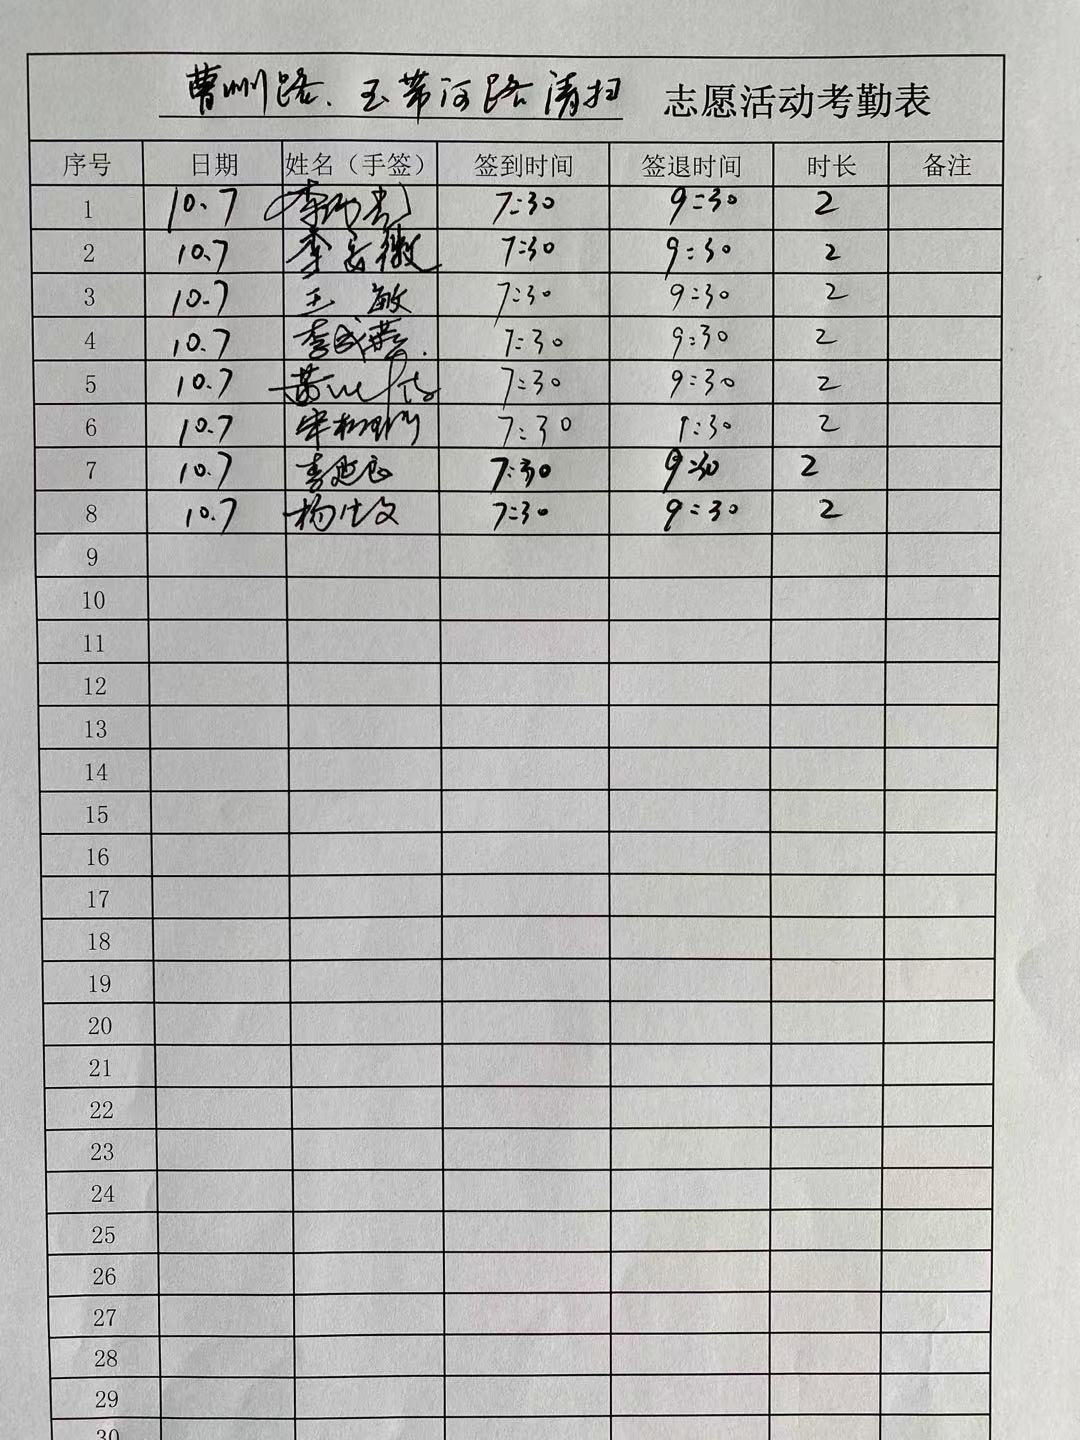 曹州路、玉带河路清扫 志愿活动考勤表
序号 日期 姓名（手签） 签到时间 签退时间 时长 备注
1 10.7 7:30 9:30 2
2 10.7 李 7:30 9:30 2
3 10.7 王敏 7:30 9:30 2
4 10.7 李成 7:30 9:30 2
5 10.7 7:30 9:30 2
6 10.7 宋 7:30 9:30 2
7 10.7 李延良 7:30 9:30 2
8 10.7 杨仕文 7:30 9:30 2
9
10
11
12
13
14
15
16
17
18
19
20
21
22
23
24
25
26
27
28
29
30